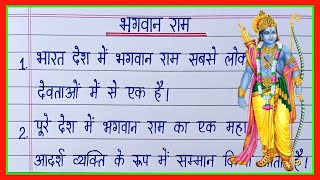 भगवान राम
1. भारत देश में भगवान राम सबसे
देवताओं में से एक है।
2. पूरे देश में भगवान राम का एक
आदर्श व्यक्ति के रूप में सम्मान
है।